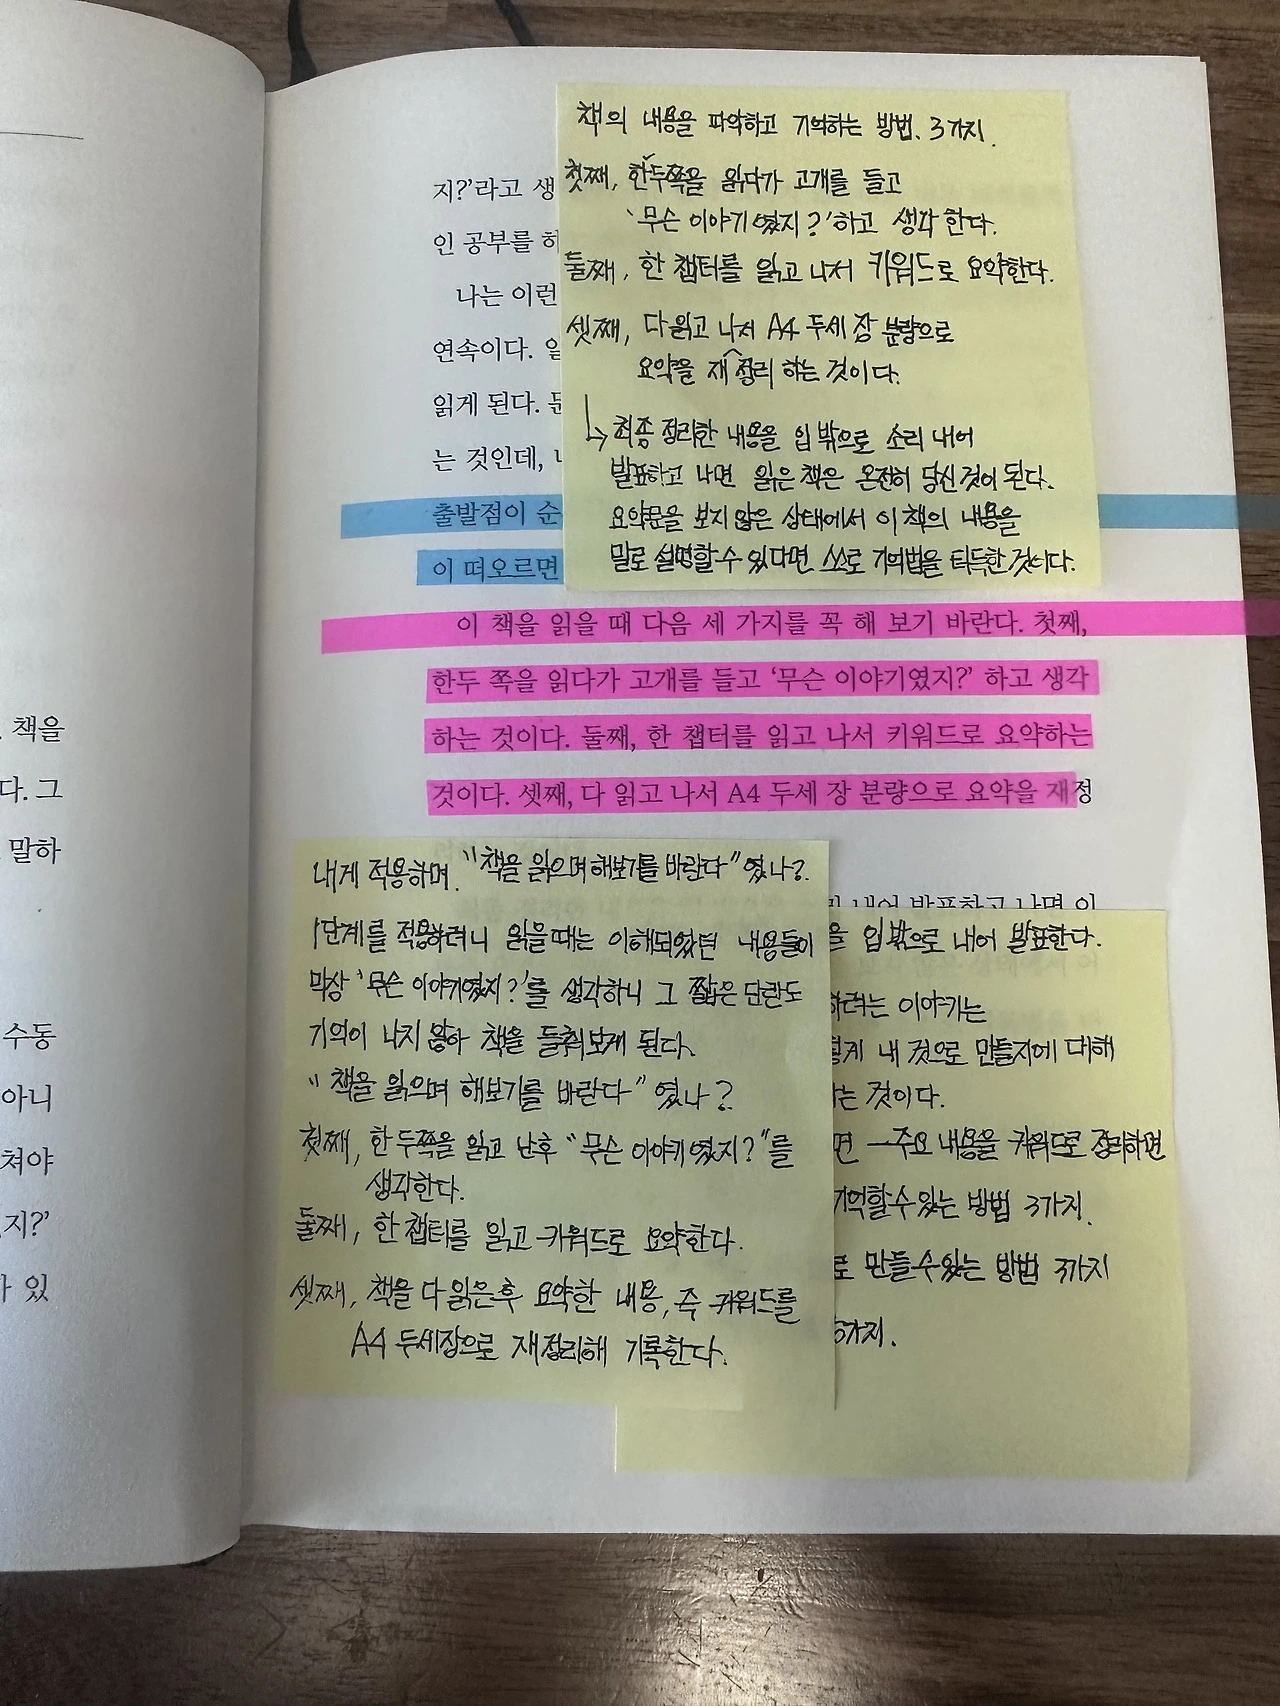 책을
다. 그
말하
수동
아니
쳐야
지?’
있
지?’라고 생
인 공부를 하
나는 이런
연속이다. 일
읽게 된다. 문
는 것인데,
출발점이 순
이 떠오르면
책의 내용을 파악하고 기억하는 방법. 3가지.
첫째, 한두쪽을 읽다가 고개를 들고
'무슨 이야기였지?'하고 생각한다.
둘째, 한 챕터를 읽고 나서 키워드로 요약한다.
셋째, 다 읽고 나서 A4 두세 장 분량으로
요약을 재정리 하는 것이다.
↳ 최종 정리한 내용을 입 밖으로 소리 내어
발표하고 나면 읽은 책은 온전히 당신 것이 된다.
요약문을 보지 않은 상태에서 이 책의 내용을
말로 설명할 수 있다면 스스로 기억법을 터득한 것이다.
이 책을 읽을 때 다음 세 가지를 꼭 해 보기 바란다. 첫째,
한두 쪽을 읽다가 고개를 들고 ‘무슨 이야기였지?’ 하고 생각
하는 것이다. 둘째, 한 챕터를 읽고 나서 키워드로 요약하는
것이다. 셋째, 다 읽고 나서 A4 두세 장 분량으로 요약을 재정
내어 발표하고 나면 이
내게 적용하며. "책을 읽으며 해보기를 바란다" 였나?
1단계를 적용하려니 읽을때는 이해되었던 내용들이
막상 '무슨 이야기였지?'를 생각하니 그 짧은 단란도
기억이 나지 않아 책을 들춰보게 된다.
"책을 읽으며 해보기를 바란다" 였나?
첫째, 한두쪽을 읽고 난후 "무슨 이야기였지?"를
생각한다.
둘째, 한 챕터를 읽고 키워드로 요약한다.
셋째, 책을 다 읽은후 요약한 내용, 즉 키워드를
A4 두세장으로 재정리해 기록한다.
을 입 밖으로 내어 발표한다.
하려는 이야기는
떻게 내 것으로 만들지에 대해
는 것이다.
면 주요 내용을 키워드로 정리하면
기억할 수 있는 방법 3가지.
로 만들 수 있는 방법 3가지
가지.